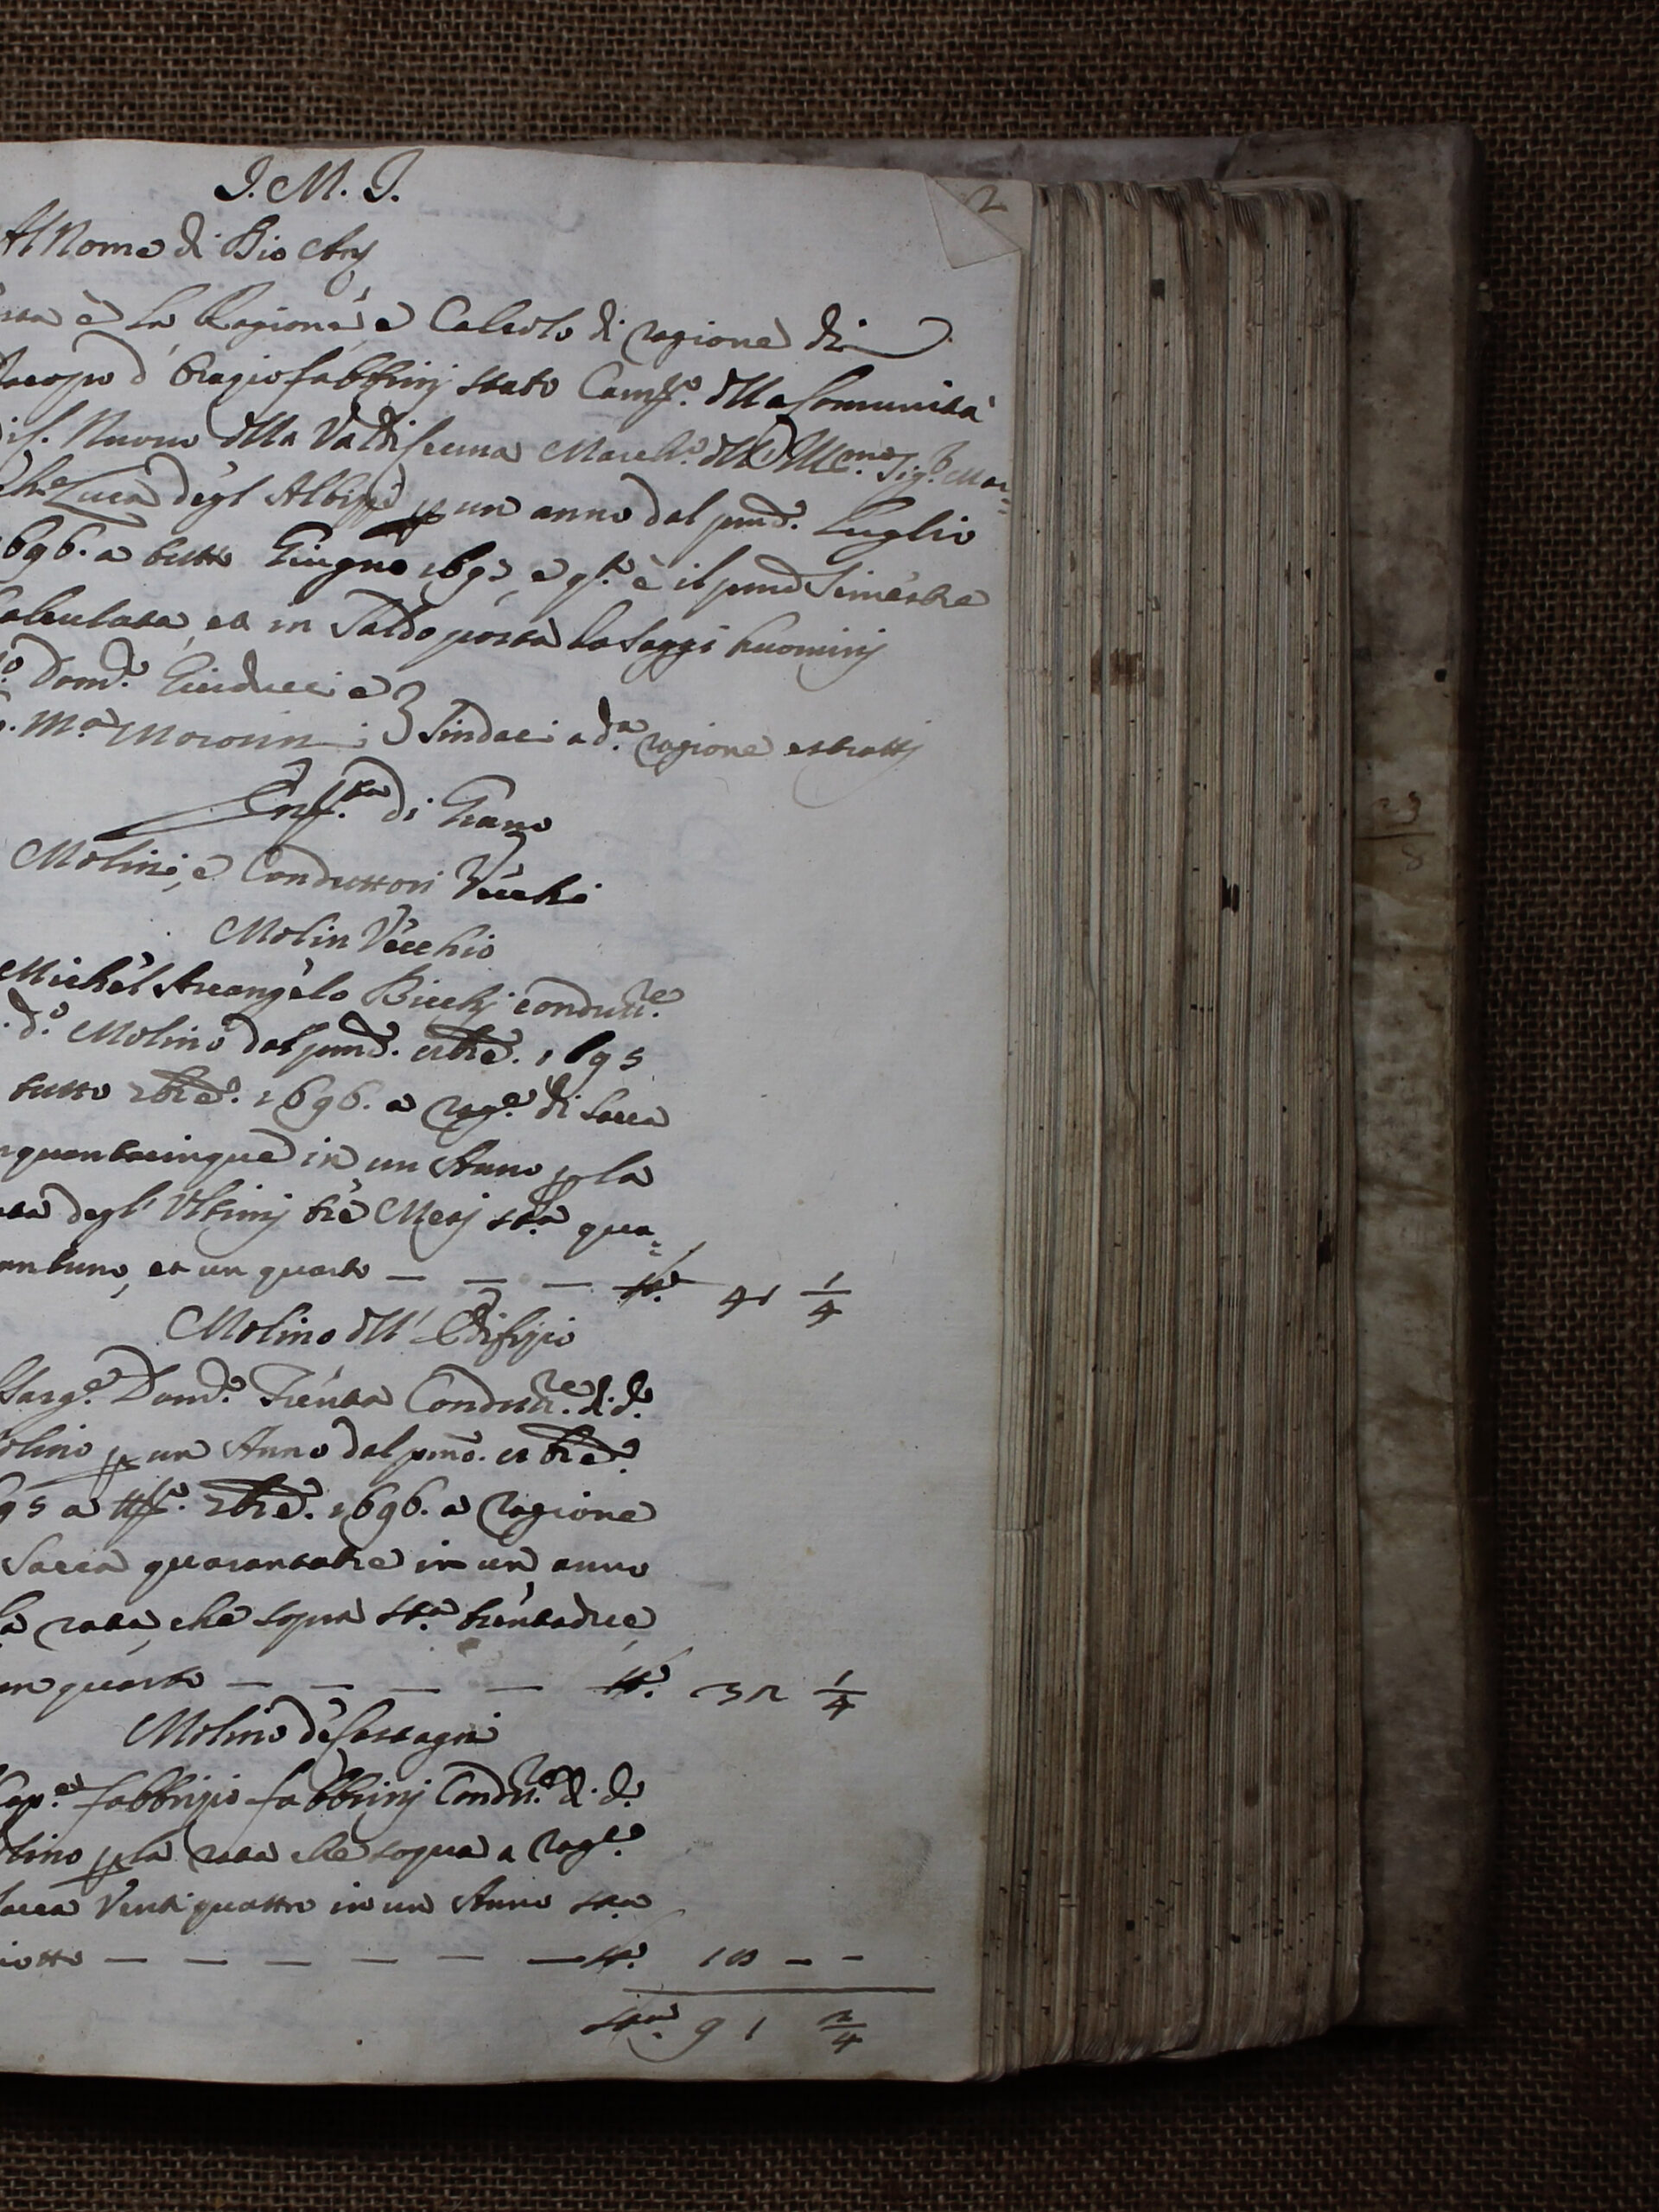 J. M. J.
2
Al Nome di Dio Am
è La Ragione, e Calcolo di ragione di
Jacopo d' Biagio fabbrinj stato Camo. dlla Comunità
Nuovo dlla Valdi Cecina March.o Sigr. Mar=
Luca degl Albizi p un anno dal pmo. Luglio
1696. a tutto Giugno 1697, e qto. è il pmo Simestre
Calculata, et in Saldo posta da Saggi huominj
Domco. Giuducci e
Ma. Morosin i } Sindaci a da. ragione estrattj
Enta. di Grano
Molini, e Conduttori Vecchi
Molin Vecchio
Michel Arcangelo Bicchj condutre.
do. Molino dal pmo. 1695
tutto 1696. a rage. di Sacca
nquantacinque in un Anno p la
degl' Ultimj tre Mesj sta. qua=
antuno, et un quarto — — — sta. 41 1/4
Molino dll' Edifizio
Sarge. Domco. Trenta Condutre. d. do.
Molino p un Anno dal pmo.
95 a 1696. a ragione
Sacca quarantatre in un anno
la rata, che sopra sta. trentadue,
un quarto — — — — sta. 32 1/4
Molino de Castagni
Fabbrizio fabbrinj Condutre. d. do.
Molino p la rata che sopra a rage.
Sacca Ventiquattro in un Anno sta
iotto — — — — — — sta. 18 – –
sta. 91 2/4